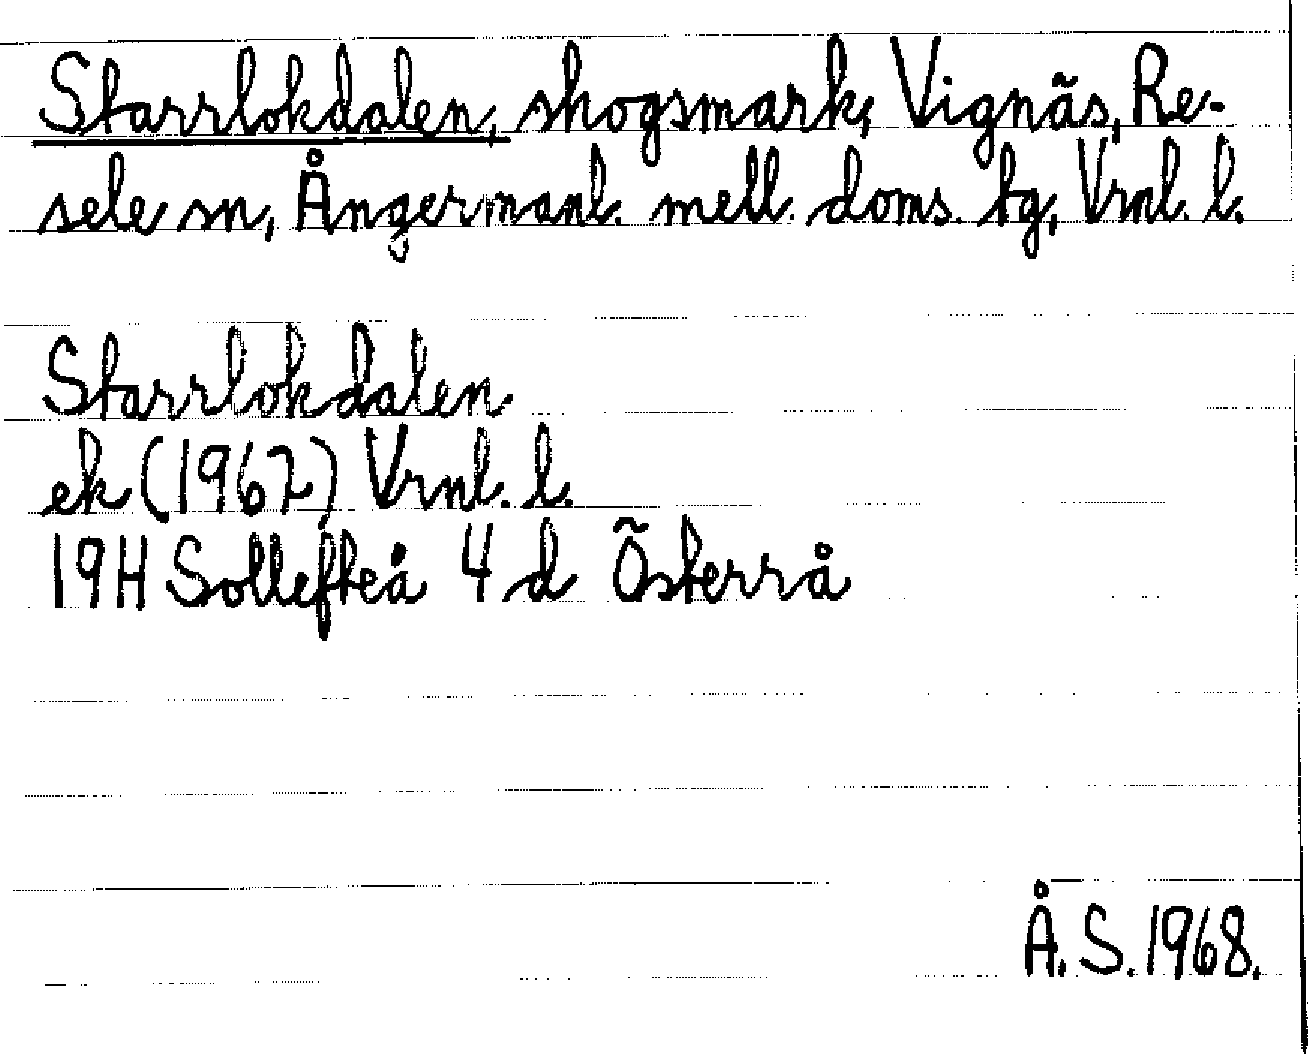 Starrlokdalen, skogsmark, Vignäs, Re-
sele sn, Ångermanl. mell. doms. tg, Vrnl. l.
Starrlokdalen
ek (1967) Vrnl. l.
19H Sollefteå 4 d Österrå
Å. S. 1968.